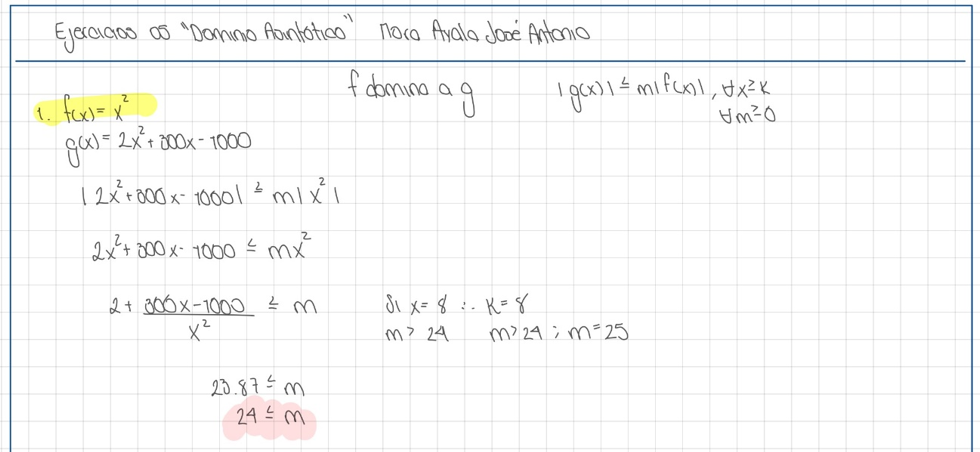 Ejercicios os "Domino Asintótico" Mora Ayala José Antonio
f domina a g |g(x)| ≤ m|f(x)|, ∀x≥K
∀m≥0
1. f(x)= x²
g(x)= 2x²+300x-1000
|2x²+300x-1000| ≤ m|x²|
2x²+300x-1000 ≤ mx²
2+ 300x-1000/x² ≤ m Si x=8 ∴ K=8
m> 24 m>24 ; m=25
23.87 ≤ m
24 ≤ m